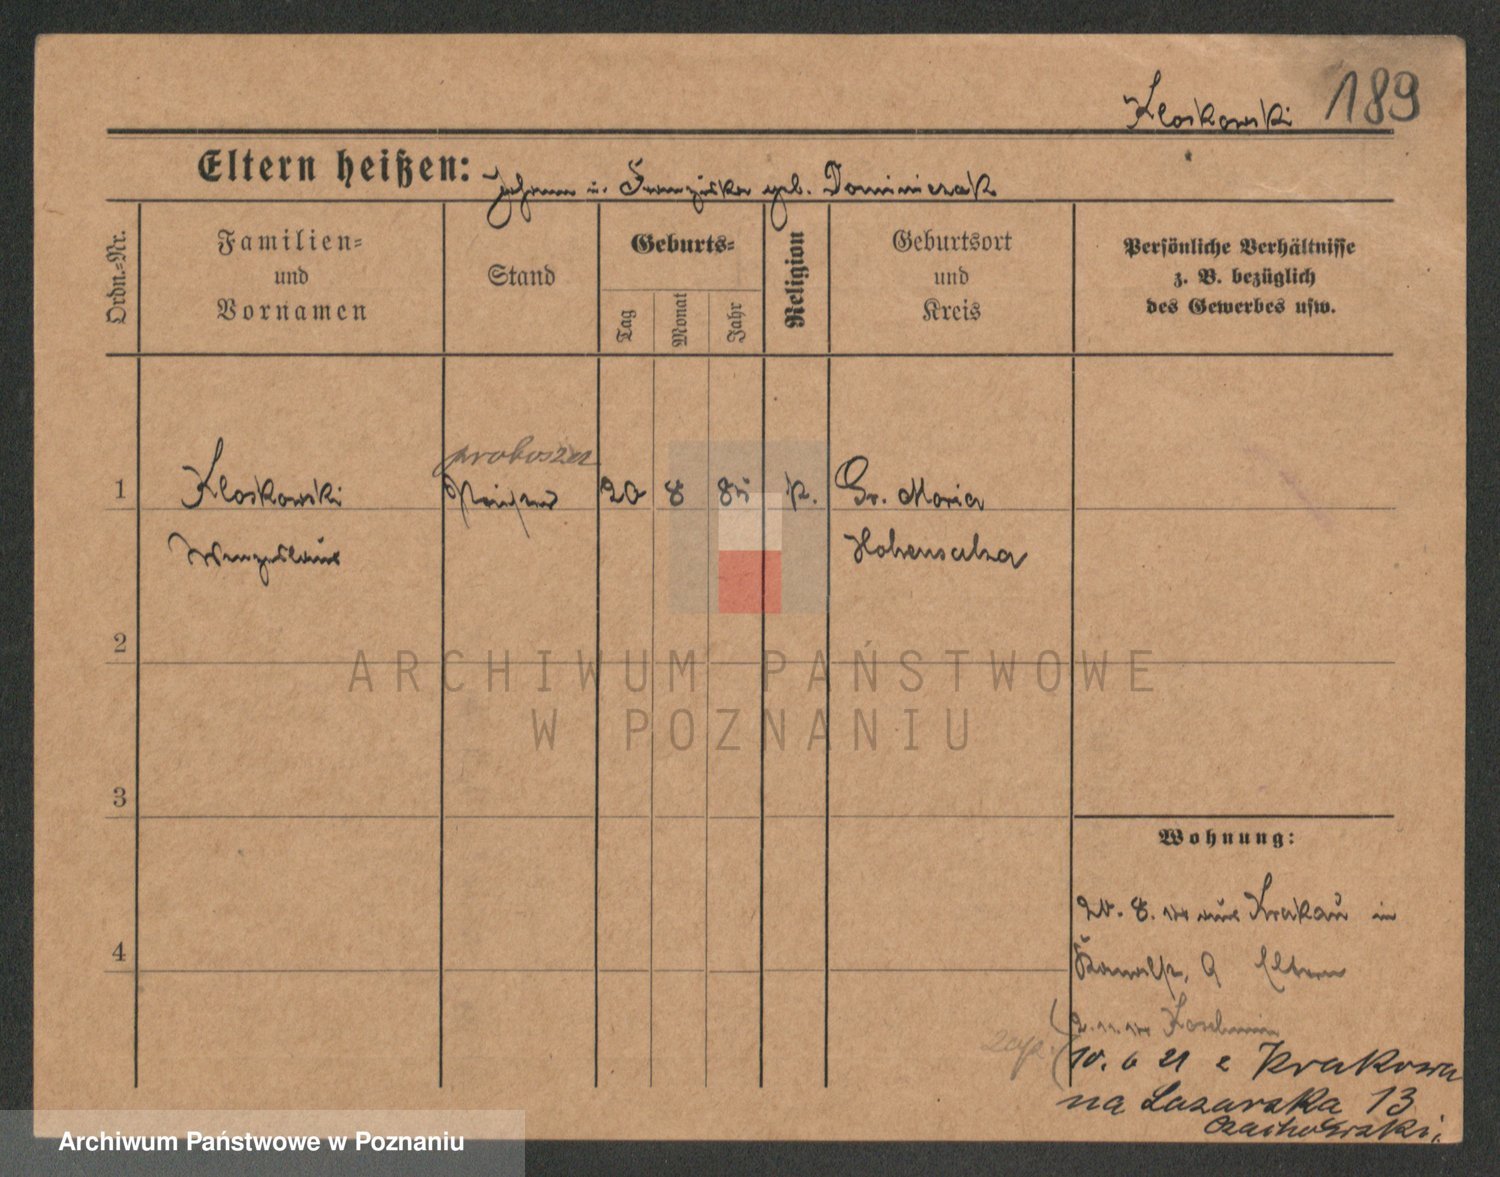 Kloskowski 189
Eltern heißen: Johann u. Franziska geb. Dominiczak
Ordn.-Nr.
Familien-
und
Vornamen
Stand
Geburts-
Tag
Monat
Jahr
Religion
Geburtsort
und
Kreis
Persönliche Verhältnisse
z. B. bezüglich
des Gewerbes usw.
proboszcz
1 Kloskowski 20 8 85 k. Gr. Morin
Wenzeslaus Hohensalza
2
ARCHIWUM PAŃSTWOWE
W POZNANIU
3
Wohnung:
20. 8. aus Krakau in
4
9 Eltern
2. 11. Koschmin
10. 6 21 z Krakowa
na Łazarska 13
Archiwum Państwowe w Poznaniu